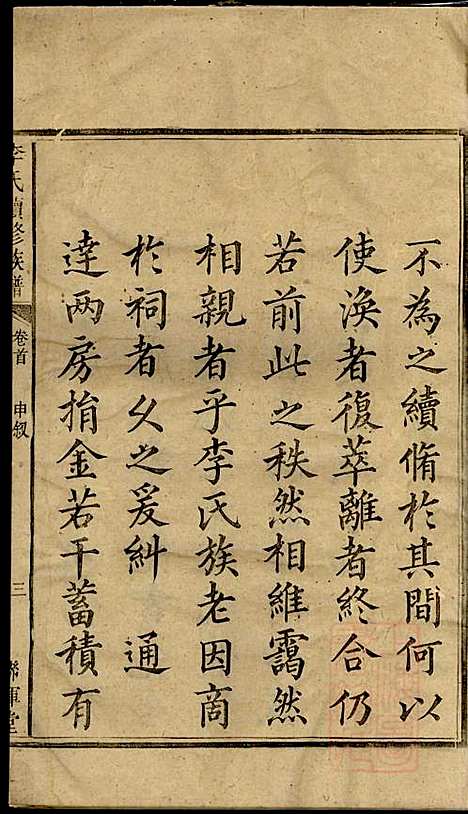 不為之續脩於其間何以
使渙者復萃離者終合仍
若前此之秩然相維靄然
相親者乎李氏族老因商
於祠者久之爰糾　通
達兩房捐金若干蓄積有
李氏續修族譜
卷首　申叙
三